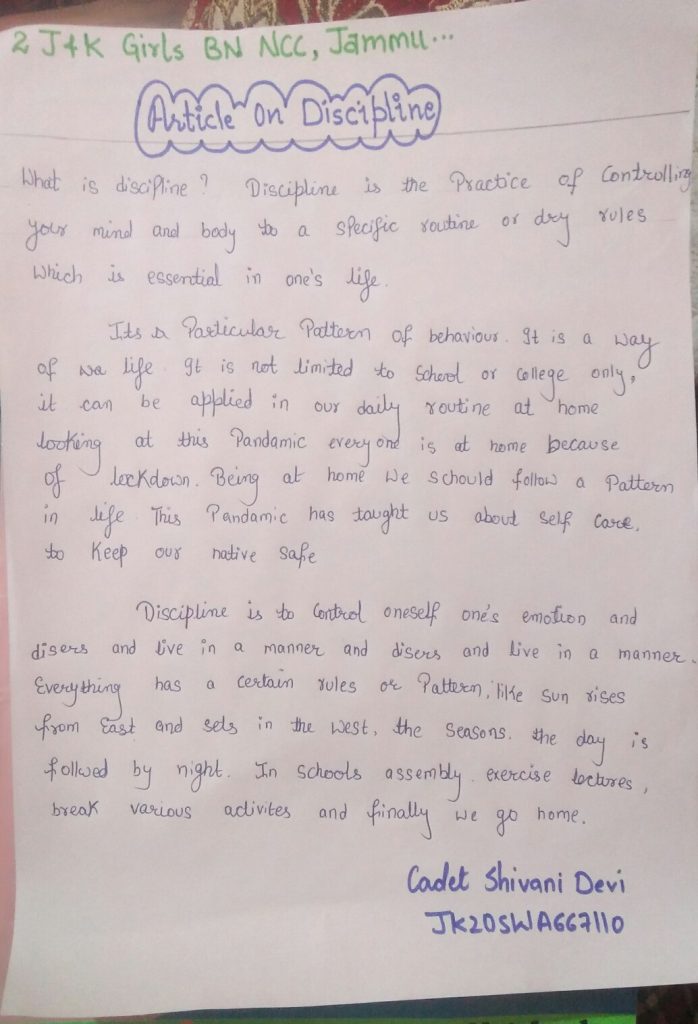 2 J&K Girls BN NCC, Jammu...
Article On Discipline
What is discipline? Discipline is the Practice of Controlling
your mind and body to a specific routine or dry rules
Which is essential in one's life.
Its a Particular Pattern of behaviour. It is a way
of wa life. It is not limited to School or College only,
it can be applied in our daily routine at home
looking at this Pandamic everyone is at home because
of lockdown. Being at home we schould follow a Pattern
in life. This Pandamic has taught us about self care.
to Keep our native safe
Discipline is to Control oneself one's emotion and
disers and live in a manner and disers and live in a manner.
Everything has a certain rules or Pattern, like sun rises
from East and sets in the West, the seasons. the day is
follwed by night. In schools assembly. exercise lectures,
break various activites and finally we go home.
Cadet Shivani Devi
JK20SWA667110